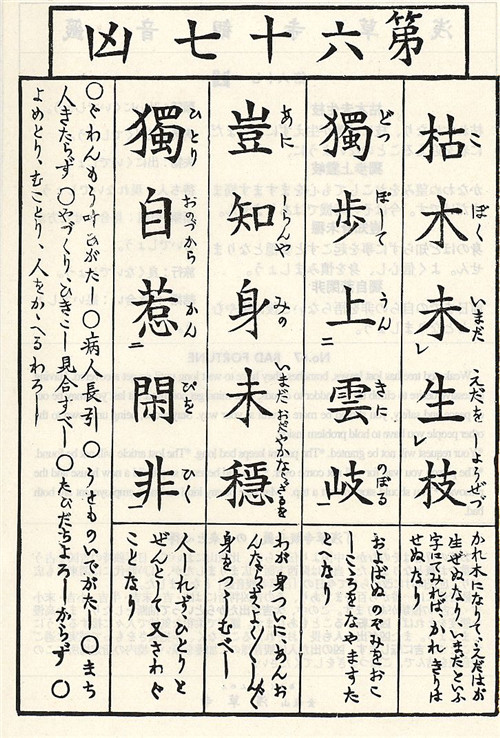 第六十七凶
枯木未生枝
こ ぼく いまだ えだを しやうぜず
かれ木になりて、えだはが
生ぜぬなり、いまだといふ
字にてみれば、かれきりは
せぬなり
獨歩上雲岐
どつ ぽして うん きに のぼる
およばぬのぞみをおこ
しこころをなやますた
とへなり
豈知身未穩
あに しらんや みの いまだおだやかならざるを
わが身いまだあんお
んならずよく〳〵
身をつゝしむべし
獨自惹閑非
ひとり おのづから かん ぴを ひく
ひとりと
ぜんとして又さわぐ
ことなり
○ぐわんもう叶ひがたし○病人長引○うせものいでがたし○まち
人きたらず○やづくりひきこし見合すべし○たびだちよろしからず○
よめとり、むことり、人をかゝへるわろし